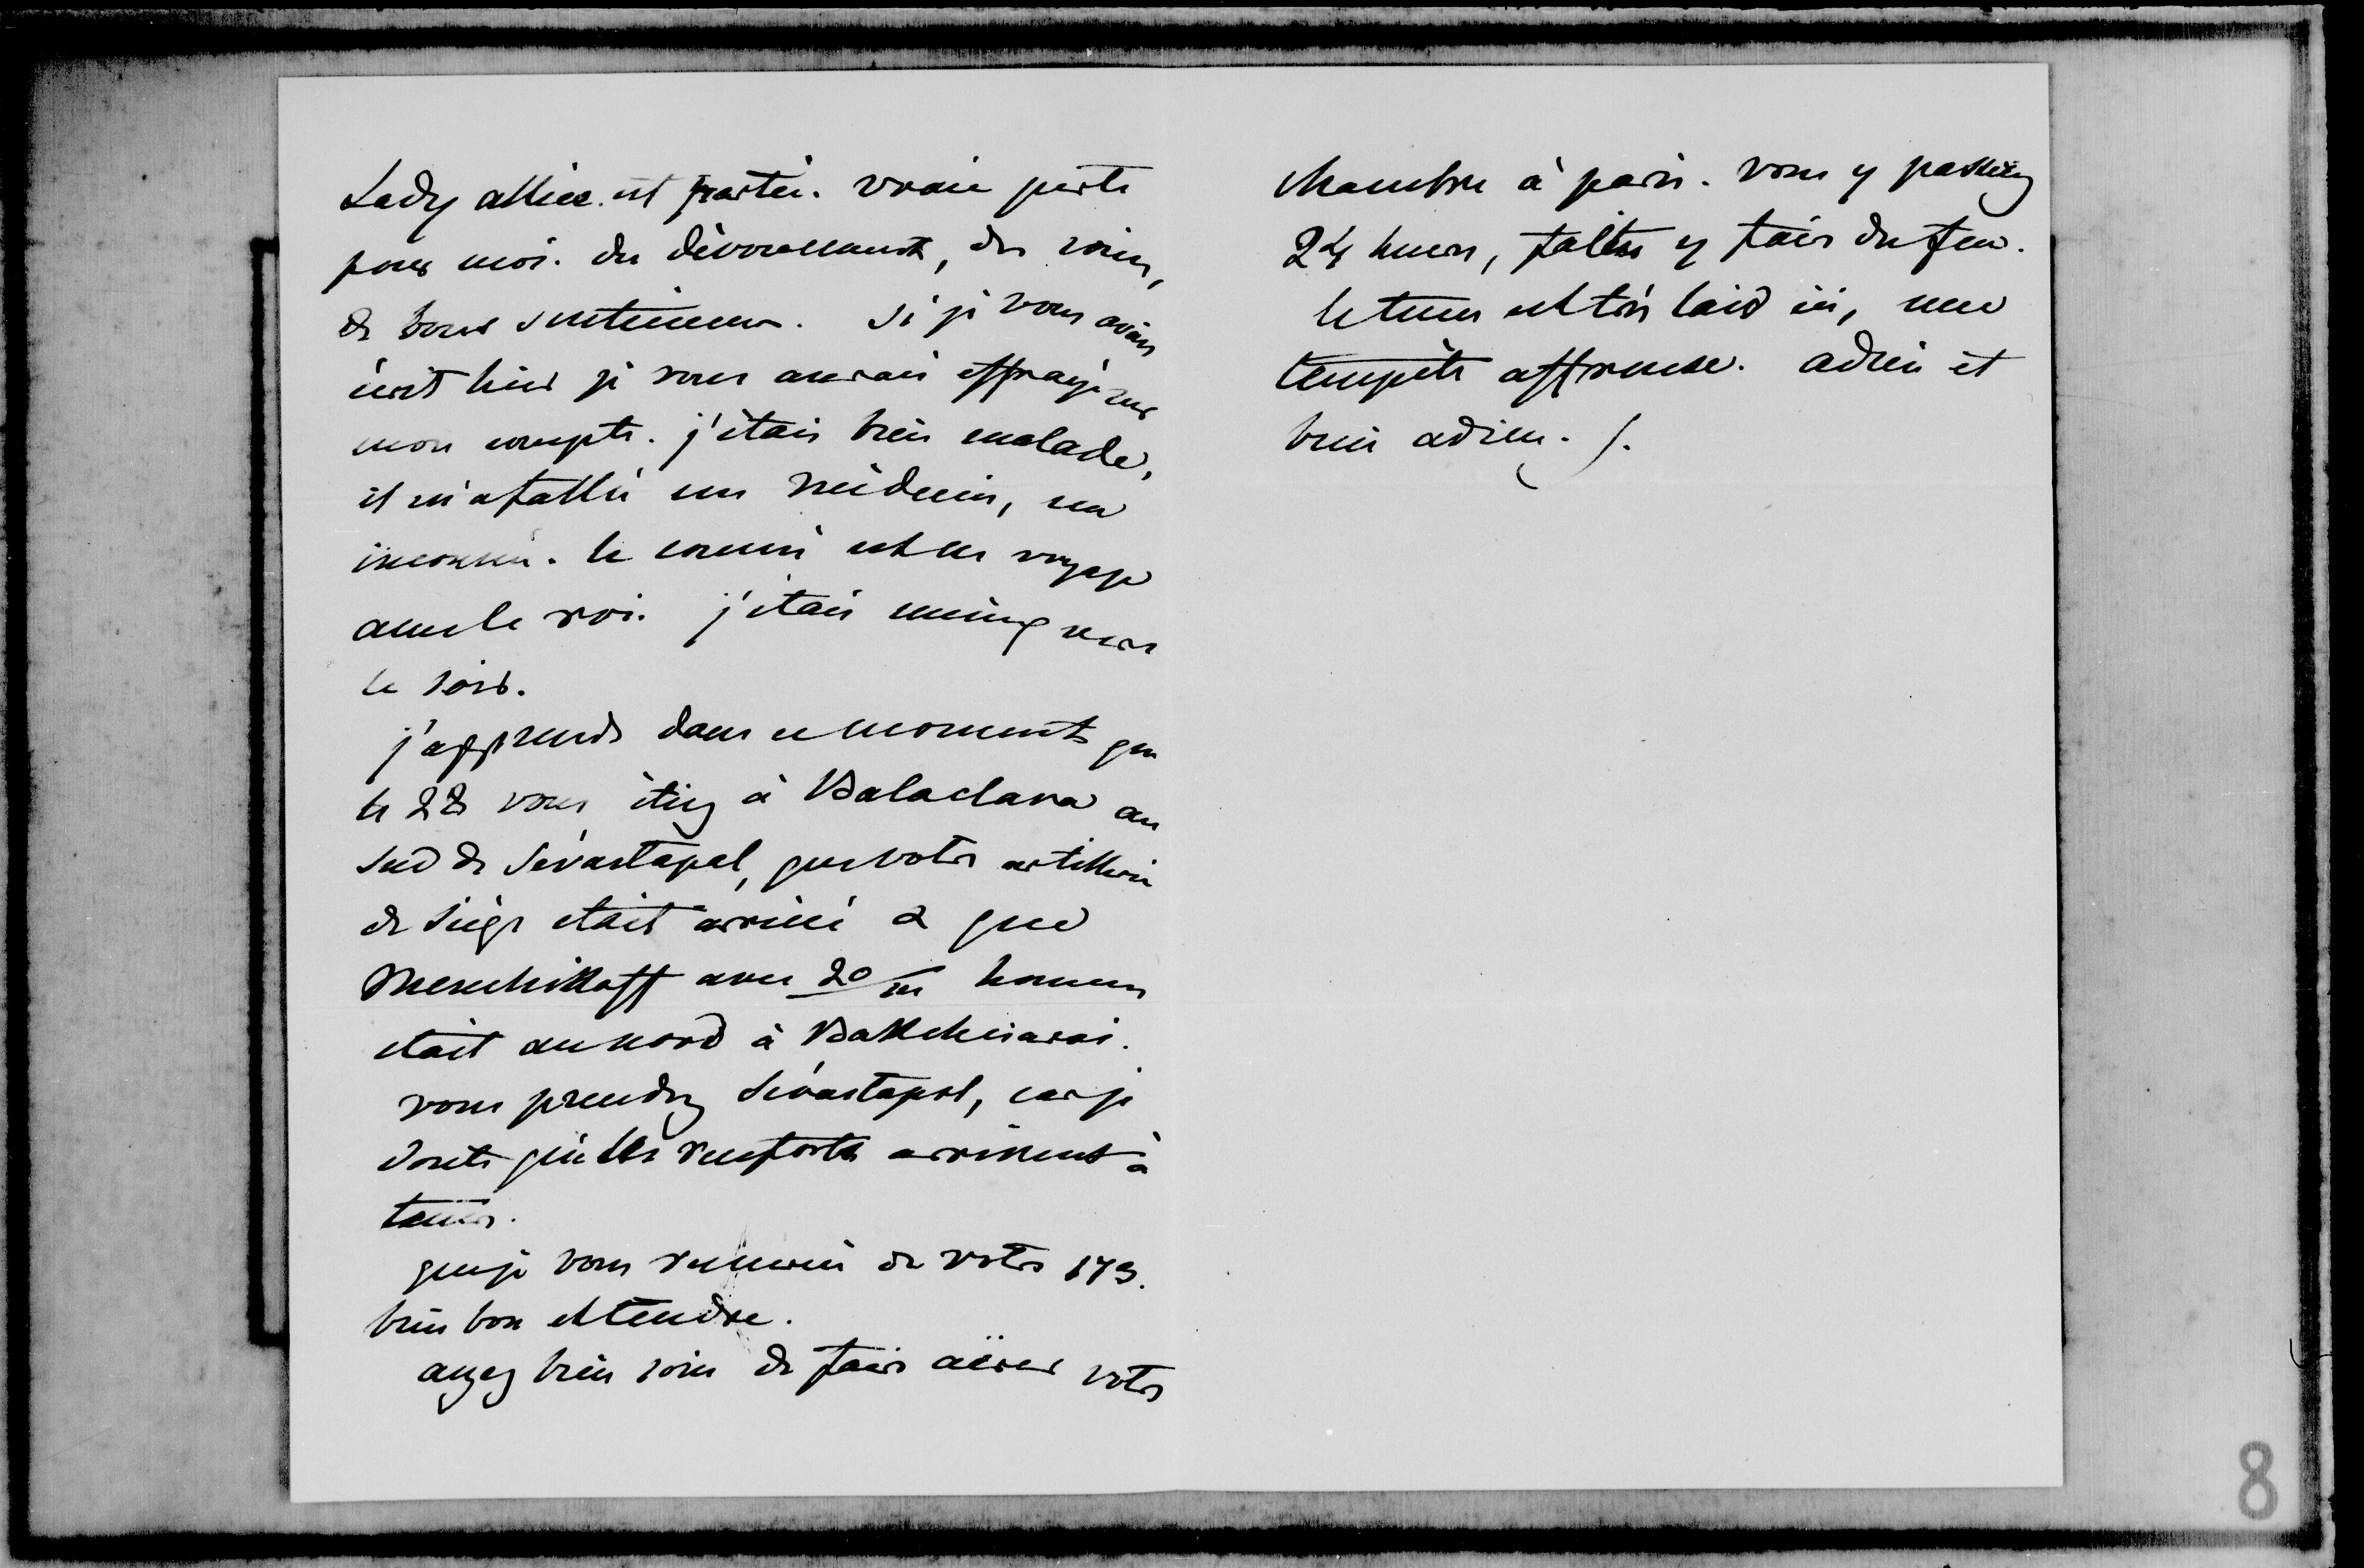 Lady allice est partie. vraie perte
pour moi. du dévouement, des soins,
de bons sentimens. Si je vous avais
écrit hier je vous aurais effrayé sur
mon compte. j'étais bien malade,
il m'a fallu un médecin, un
inconnu. le connu est en voyage
avec le roi. j'étais mieux vers
le soir.
j'apprends dans ce moment que
le 28 vous étiez à Balaclava au
sud de Sévastapol, que votre artillerie
de siège etait arrivée & que
Menchikoff avec 20/m hommes
etait au nord à Baktchisarai.
vous prendrez Sévastapol, car je
doute que les renforts arrivent à
tems.
que je vous remercie de votre 173.
bien bon et tendre.
ayez bien soin de faire aërer votre
chambre à paris. vous y passerez
24 heures, faites y faire du feu.
le tems est très laid ici, une
tempête affreuse. adieu et
bien adieu.
8